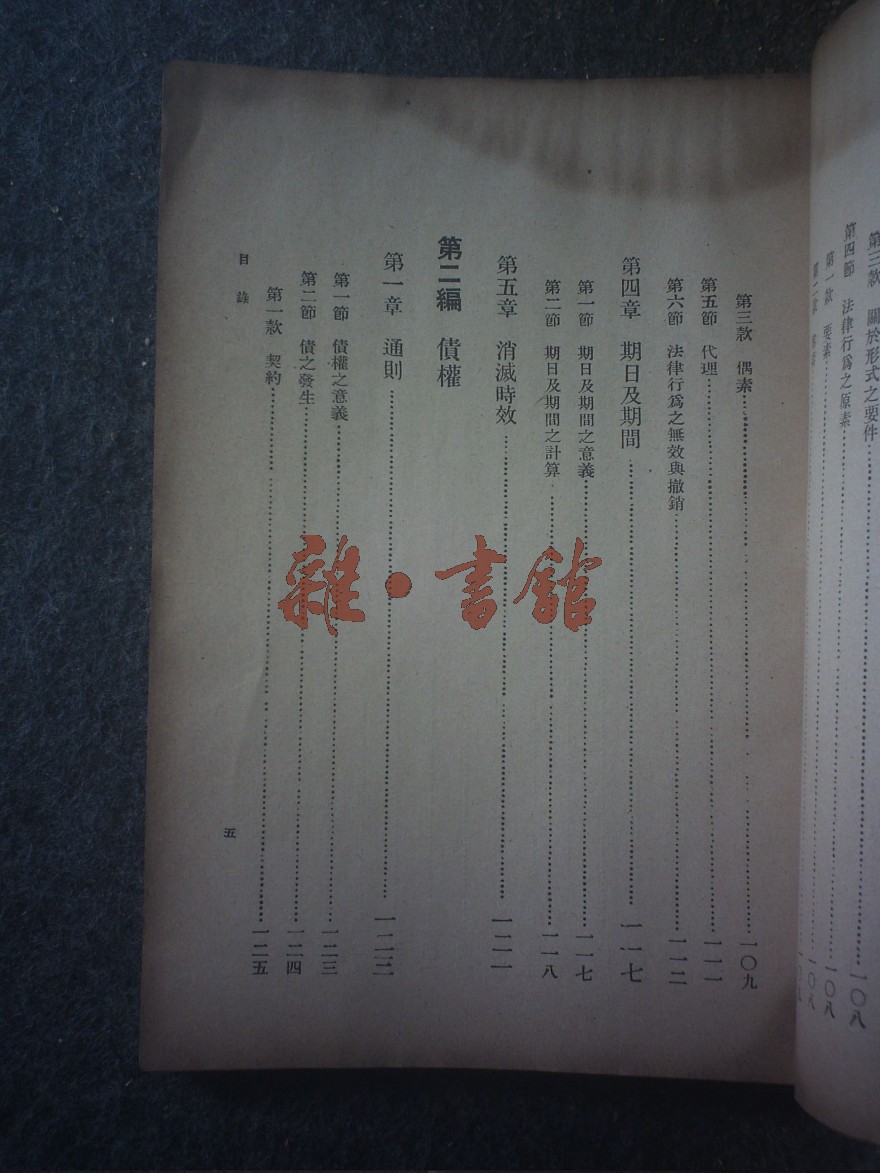 第三款 關於形式之要件
第四節 法律行爲之原素 一〇八
第一款 要素 一〇八
第二款 一〇八
第三款 偶素 一〇九
第五節 代理 一一一
第六節 法律行爲之無效與撤銷 一一二
第四章 期日及期間 一一七
第一節 期日及期間之意義 一一七
第二節 期日及期間之計算 一一八
第五章 消滅時效 一二一
第二編 債權
第一章 通則 一二三
第一節 債權之意義 一二三
第二節 債之發生 一二四
第一款 契約 一二五
目錄 五
雜·書館